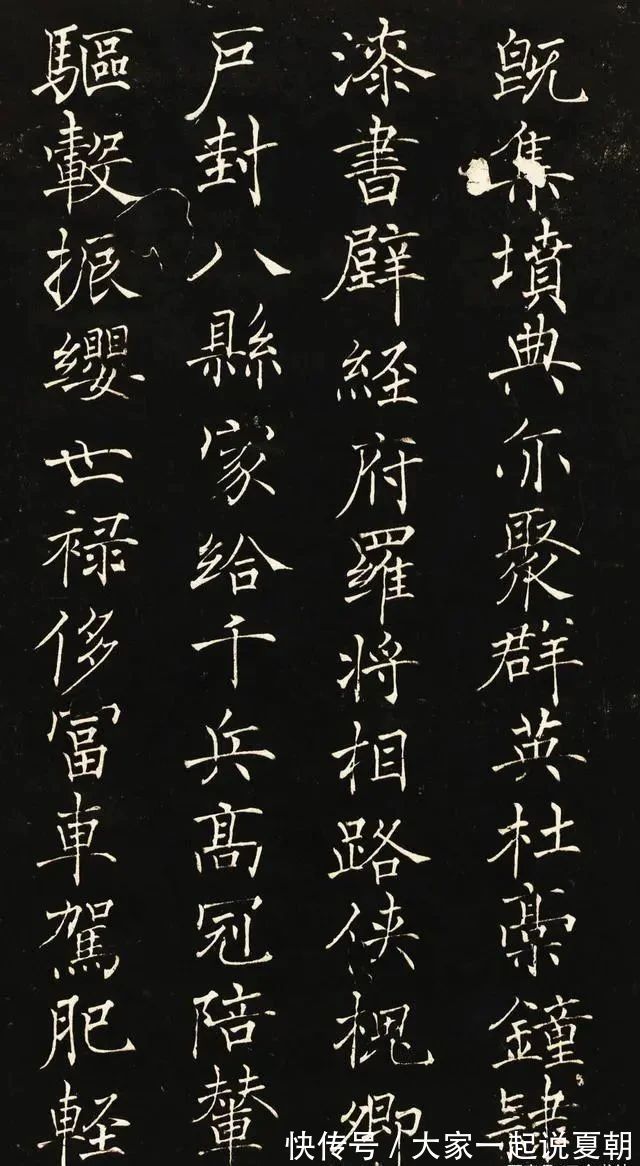 既集墳典亦聚群英杜稾鍾隸
漆書壁經府羅將相路侠槐卿
户封八縣家給千兵高冠陪輦
驅轂振纓世禄侈富車駕肥軽
快传号/大家一起说夏朝